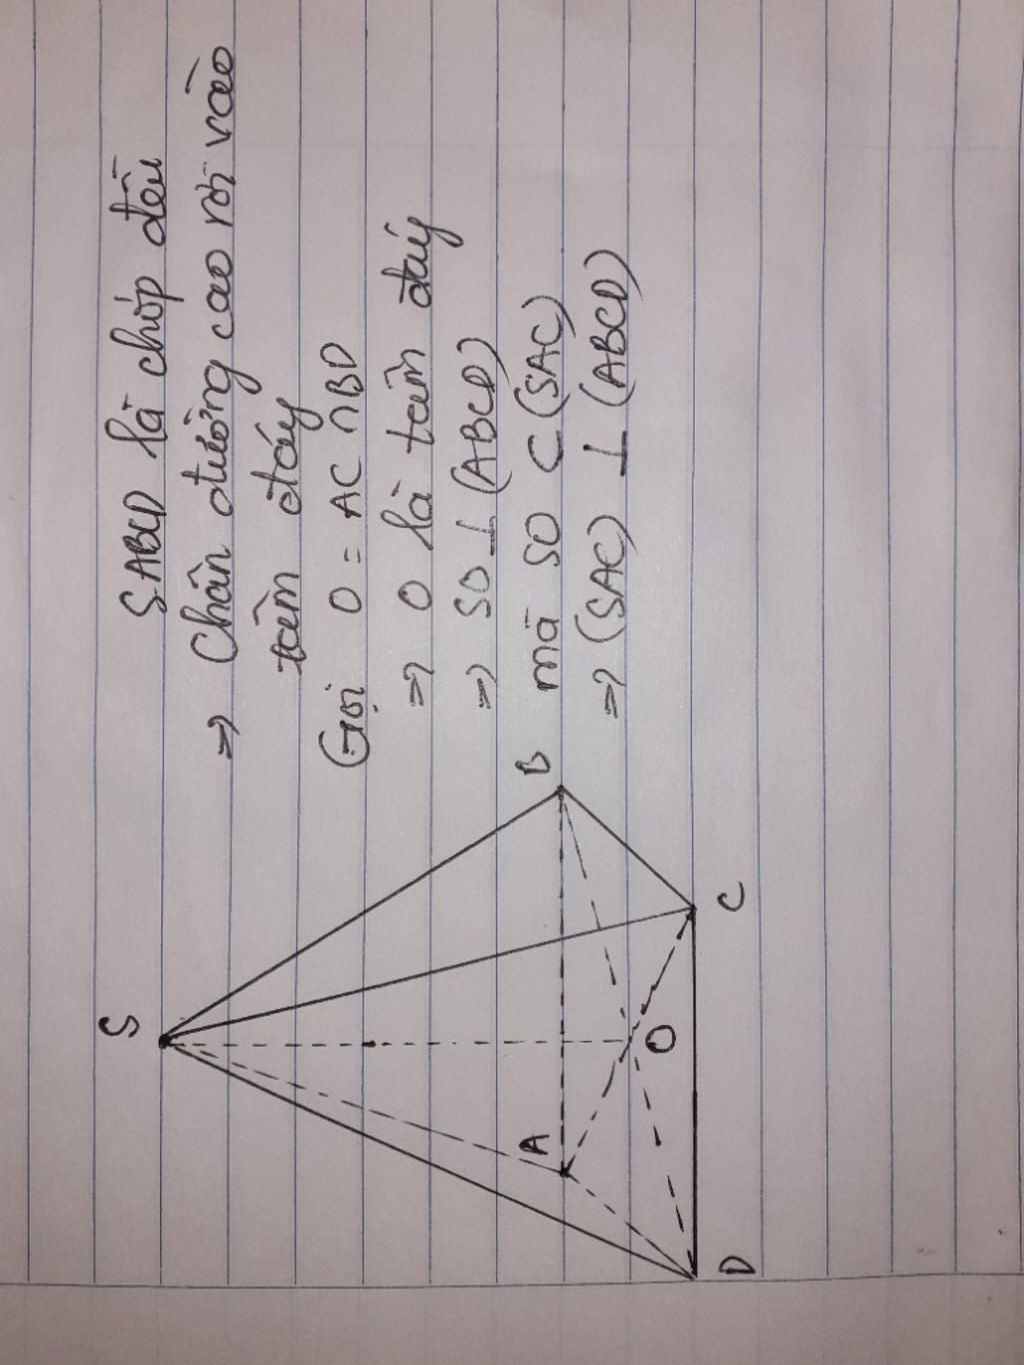 S.ABCD là chóp đều
=> Chân đường cao rơi vào
tâm đáy
Gọi O = AC ∩ BD
=> O là tâm đáy
=> SO ⊥ (ABCD)
mà SO ⊂ (SAC)
=> (SAC) ⊥ (ABCD)
S
A
B
O
D
C